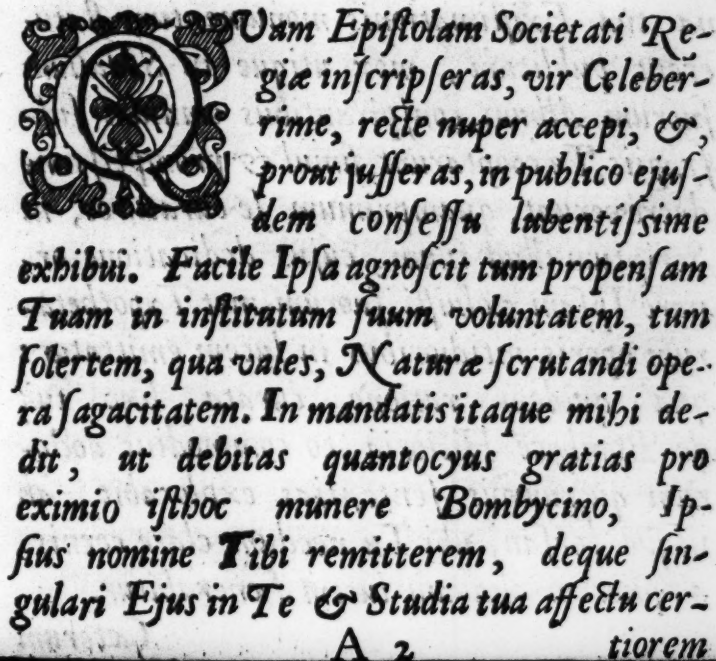 QUam Epiſtolam Societati Re-
giæ inſcripſeras, vir Celeber-
rime, recte nuper accepi, &,
prout juſſeras, in publico ejuſ-
dem conſeſſu lubentiſsime
exhibui. Facile Ipſa agnoſcit tum propenſam
Tuam in inſtitutum ſuum voluntatem, tum
ſolertem, qua vales, Naturæ ſcrutandi ope-
ra ſagacitatem. In mandatis itaque mihi de-
dit, ut debitas quantocyus gratias pro
eximio iſthoc munere Bombycino, Ip-
ſius nomine Tibi remitterem, deque ſin-
gulari Ejus in Te & Studia tua affectu cer-
A 2 tiorem